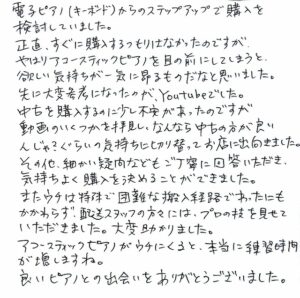 電子ピアノ(キーボード)からのステップアップで購入を
検討していました。
正直、すぐに購入するつもりはなかったのですが、
やはりアコースティックピアノを目の前にしてしまうと、
欲しい気持ちが一気に昂るものだなと思いました。
先に大変参考になったのが、Youtubeでした。
中古を購入するのに少し不安があったのですが
動画のいくつかを拝見し、なんなら中古の方が良い
んじゃ?ぐらいの気持ちに切り替ってお店に出向きました。
その他、細かい疑問などもご丁寧に回答いただき、
気持ちよく購入を決めることができました。
またウチは特殊で困難な搬入経路であったにも
かかわらず、配送スタッフの方々には、プロの技を見せて
いただきました。大変助かりました。
アコースティックピアノがウチにくると、本当に練習時間
が増しますね。
良いピアノとの出会いをありがとうございました。